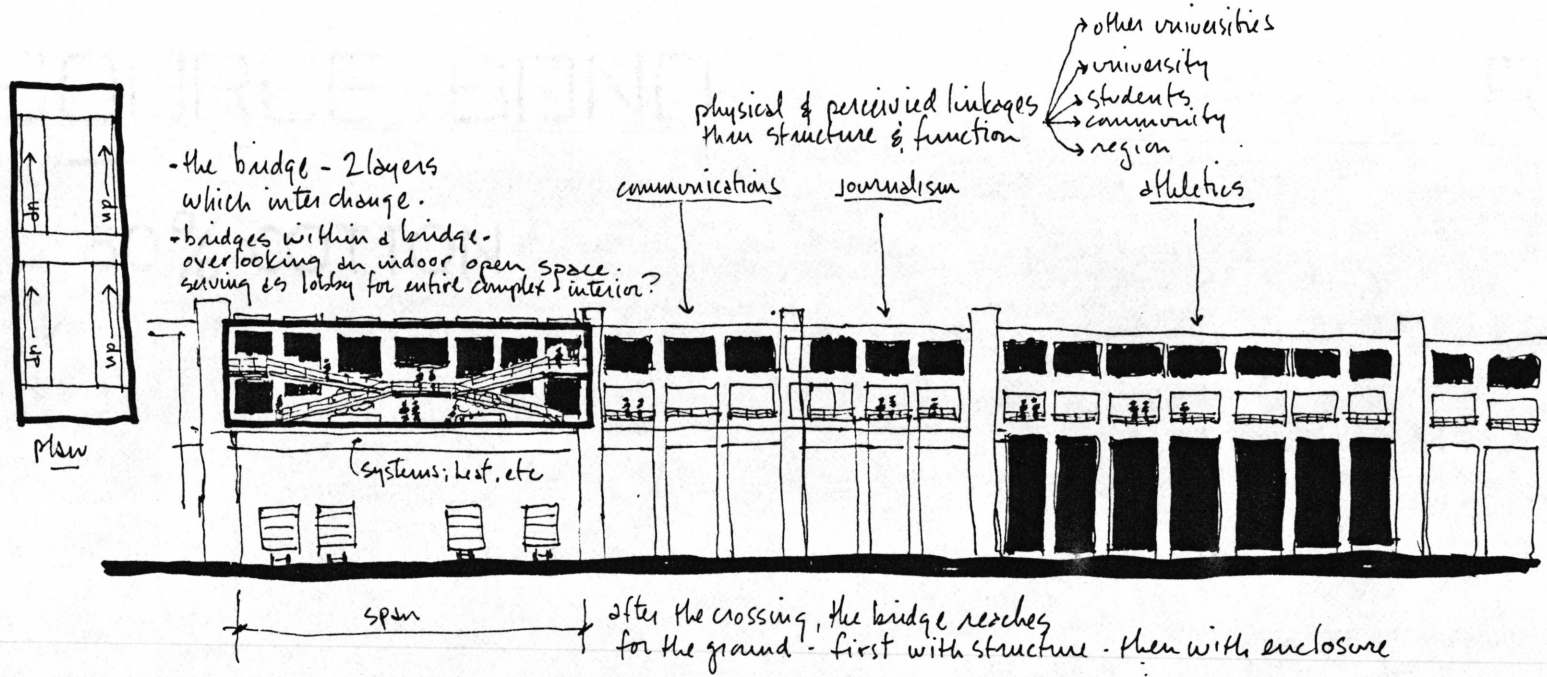 other universities
university
physical & perceivied linkages
thru structure & function
students
community
region
-the bridge - 2 layers
which interchange.
-bridges within a bridge-
overlooking an indoor open space.
serving as lobby for entire complex interior?
communications
journalism
athletics
up
up
up
up
plan
systems; heat, etc
span
after the crossing, the bridge reaches
for the ground - first with structure - then with enclosure